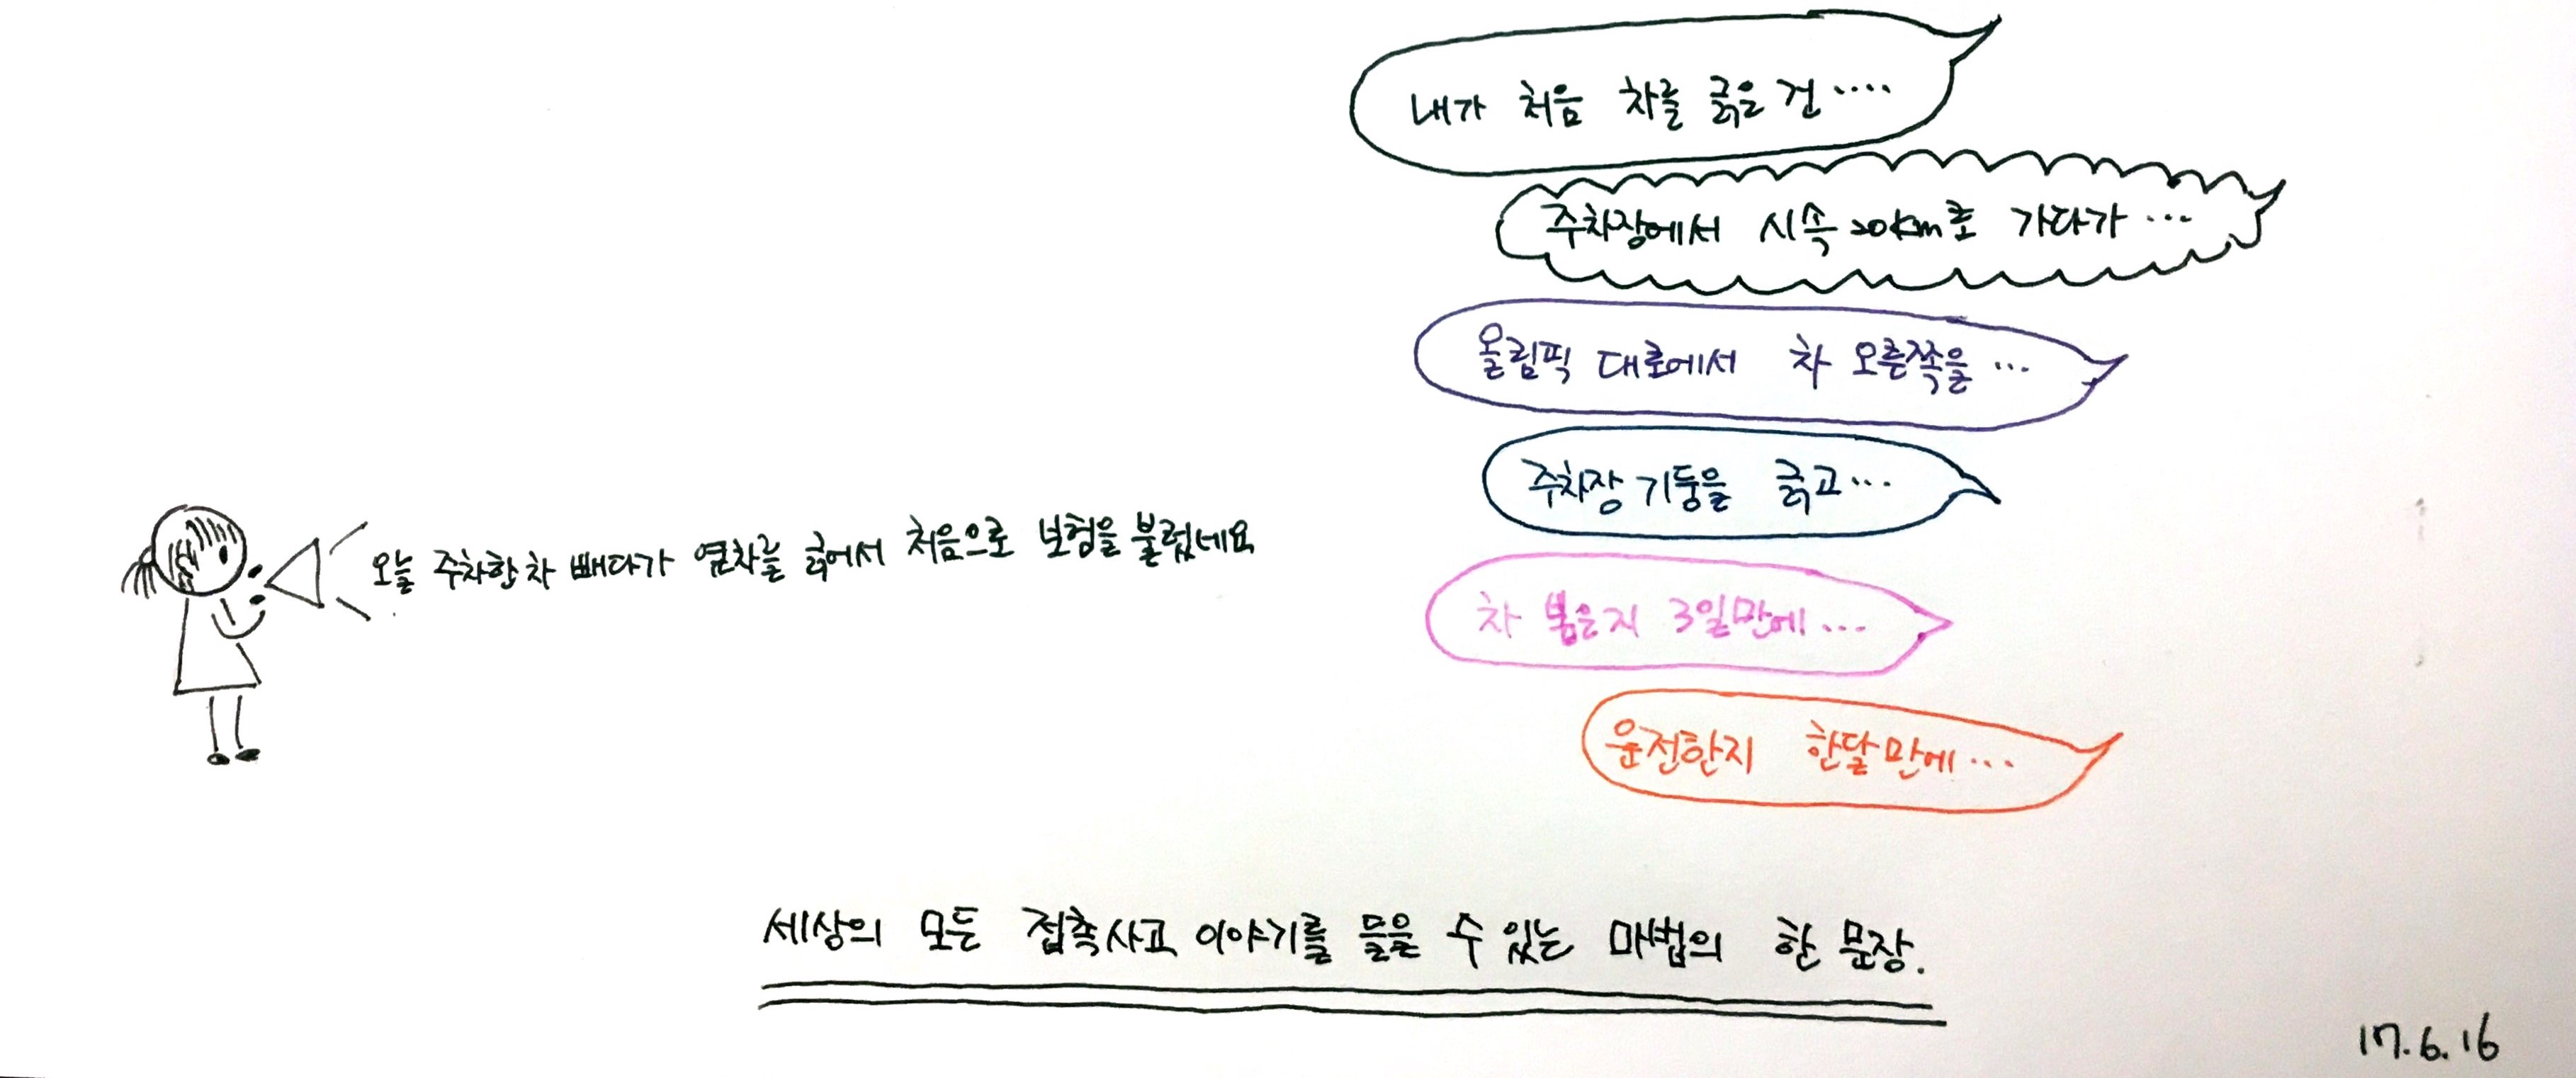 내가 처음 차를 긁은 건....
주차장에서 시속 20km로 가다가...
올림픽 대로에서 차 오른쪽을...
주차장 기둥을 긁고...
오늘 주차한 차 빼다가 옆차를 긁어서 처음으로 보험을 불렀네요
차 뽑은지 3일만에...
운전한지 한달만에...
세상의 모든 접촉사고 이야기를 들을 수 있는 마법의 한 문장.
17.6.16